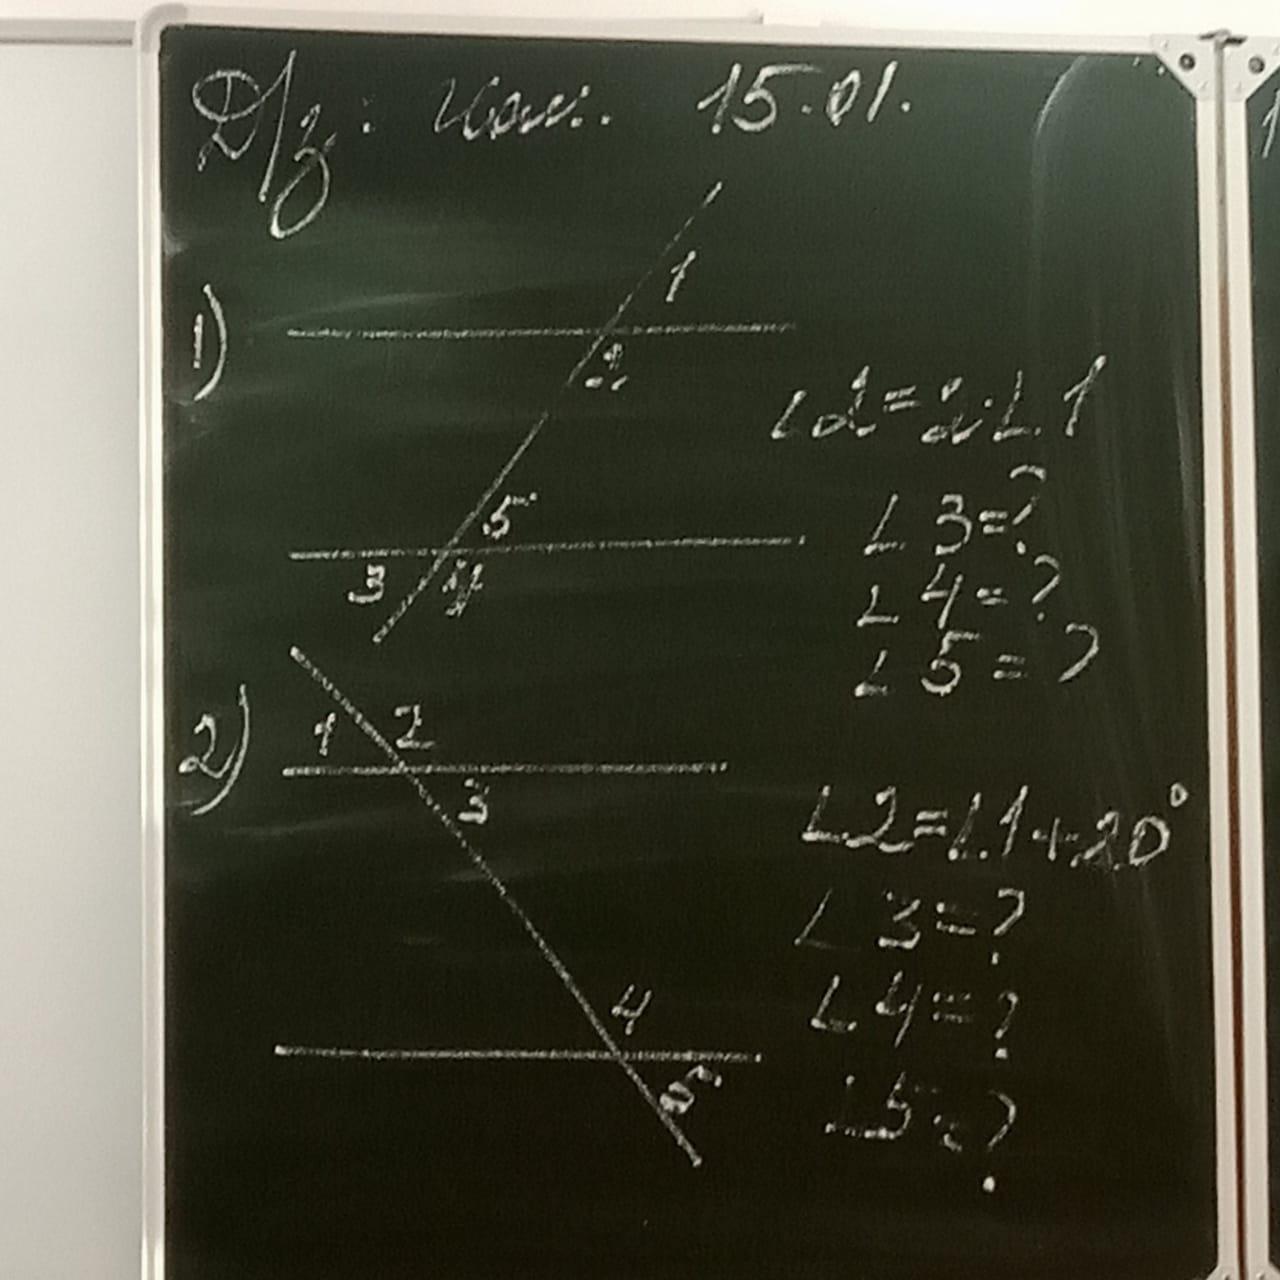 Д/з: 15.01.
1)
1
2
5
3 4
∠2=2·∠1
∠3=?
∠4=?
∠5=?
2)
1 2
3
4
5
∠2=∠1+20°
∠3=?
∠4=?
∠5=?